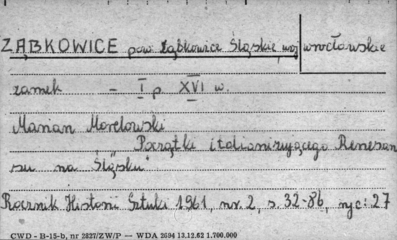 ZĄBKOWICE pow. Ząbkowice Śląskie woj wrocławskie
zamek - I p. XVI w.
Marian Morelowski
Początki italianizującego Renesan
su na Śląsku"
Rocznik Historii Sztuki 1961, nr. 2, s. 32-86, ryc: 27
CWD - B-15-b, nr 2827/ZW/P — WDA 2694 13.12.62 1.700.000